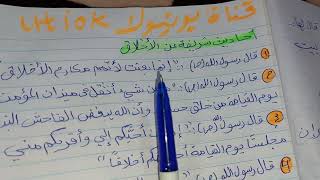 قناة يوتيوب UHiok
أحاديث شريفة عن الأخلاق
1 قال رسول الله (ص): "إنما بعثت لأتمم مكارم الأخلاق
2 قال رسول الله (ص): "من شيء أثقل في ميزان المؤمن
يوم القيامة من خلق حسن وإن الله يبغض الفاحش
3 قال رسول الله (ص): أحبكم إلي وأقربكم مني
مجلسًا يوم القيامة أحاسنكم أخلاقًا"
4 قال رسول الله